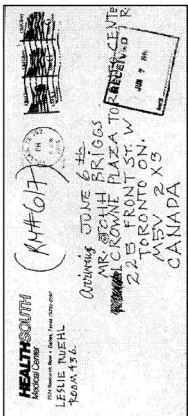 HEALTHSOUTH
Medical Center
LESLIE RUEHL
ROOM 436.
(RM# 617)
arriving JUNE 6 th
MR. BRIGGS
CROWNE PLAZA TORONTO CENTRE
225 FRONT ST. W
TORONTO ON.
M5V 2X3
CANADA
RECEIVED
JUN 7